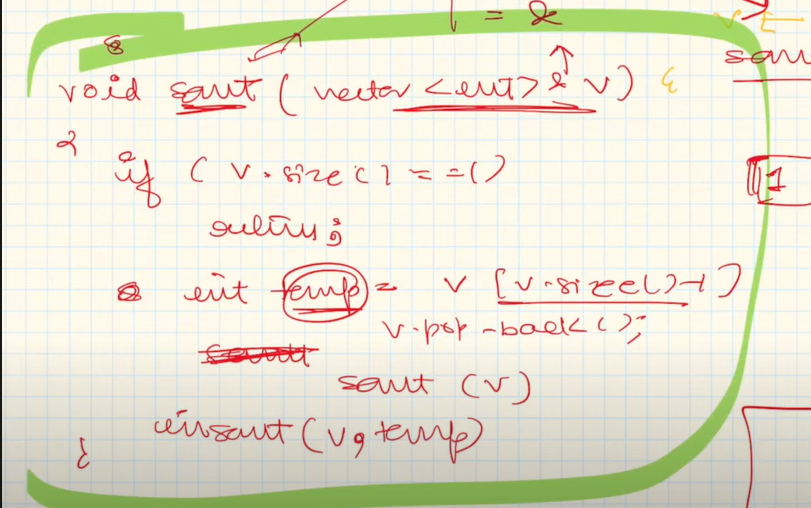 1 = 2
void sort ( vector <int> & v) {
{
if ( v.size() == 1)
return;
int temp = v [v.size()-1]
v.pop-back();
sort (v)
insert (v, temp)
}
1